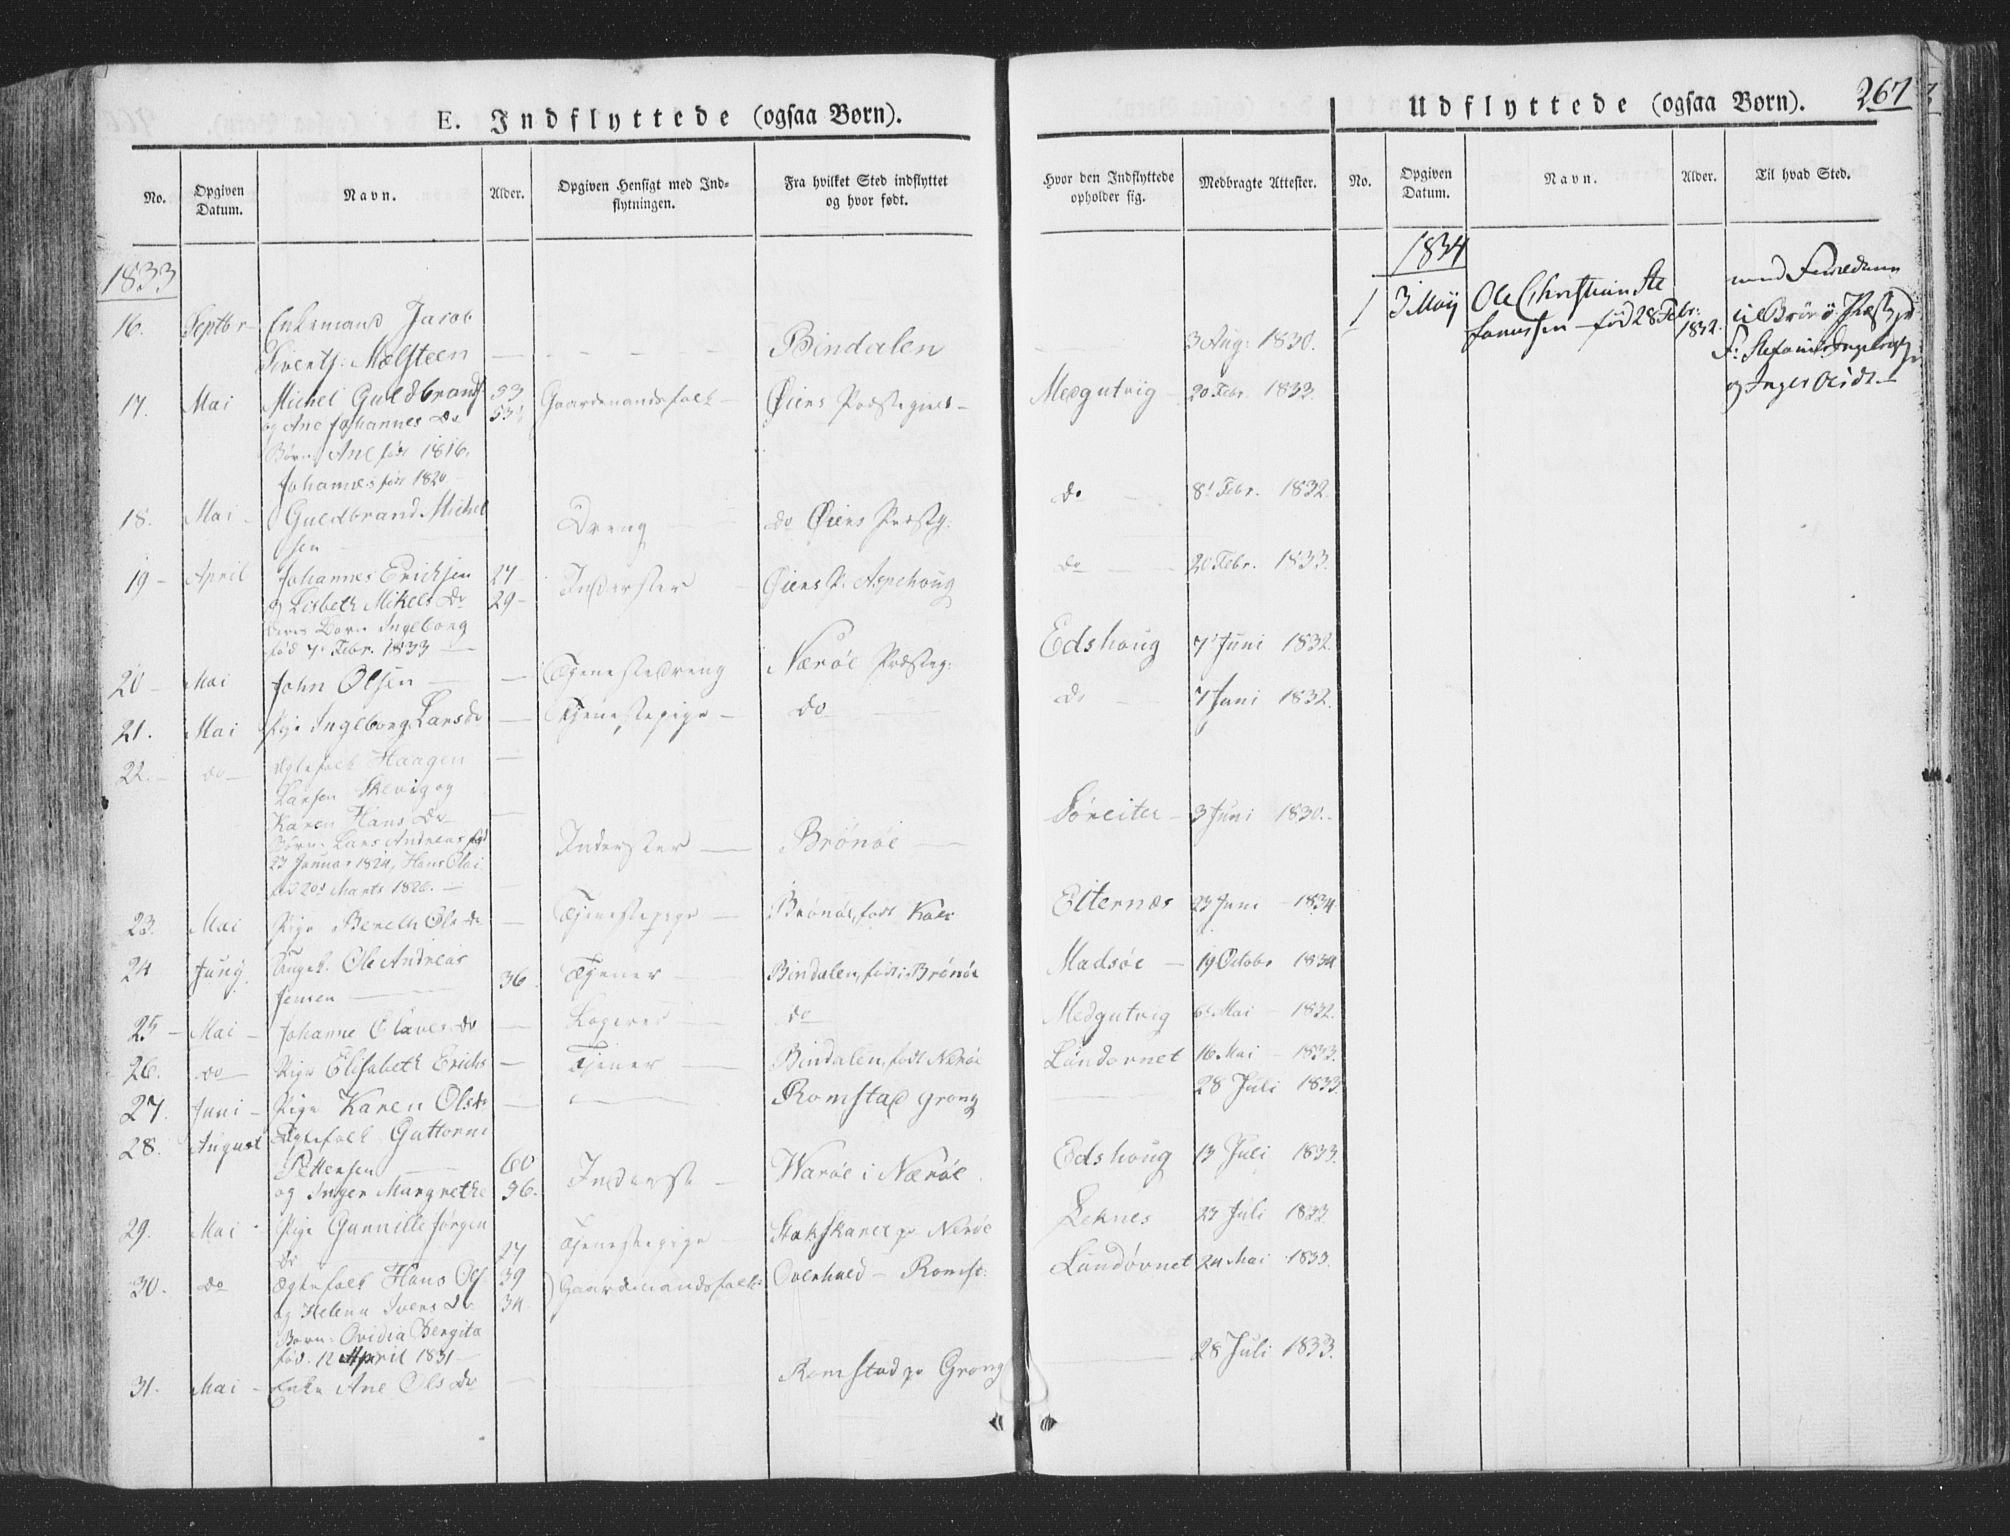 E. Indflyttede (ogsaa Børn).
No.
Opgiven Datum.
Navn.
Alder.
Opgiven Hensigt med Ind-
flytningen.
Fra hvilket Sted indflyttet
og hvor født.
Hvor den Indflyttede
opholder sig.
Medbragte Attester.
Udflyttede (ogsaa Børn). 267
No.
Opgiven Datum.
Navn.
Alder.
Til hvad Sted.
1833
16. Septbr Enkemand Jacob
Siverts: Mælsteen Bindalen 3 Aug: 1830.
17. Mai Michel Guldbrands 53 Gaardmandsfolk Øiens Præstegield Medgutviig 20 Febr. 1833.
og Ane Johannes Dr 53
Børn Ane født 1816,
Johannes født 1820
18. Mai Guldbrand Michel
sen Dreng do Øiens Præstg. do 8 Febr. 1832.
19 April Johannes Erichsen 27 Inderster Øiens P. Aspehoug do 20 Febr. 1833.
og Lisbeth Mikels Dr 29
deres Barn Ingeborg
fød 7 Febr. 1833
20 Mai John Olsen Tjenestedreng Nærøe Præsteg: Edshoug 7 Juni 1832.
21. Mai Pige Ingeborg Larsdr Tjenestepige do do 7 Juni 1832.
22. do Ægtefolk Haagen
Larsen Skevig og
Karen Hans Dr
Børn: Lars Andreas fød
23 Januar 1824, Hans Olai
fød 20 Marts 1826. Inderster Brönöe Söreiter 3 Juni 1830.
23. Mai Pige Bereth Ols dr Tjenestepige Brönöe, født Elternæs 23 Juni 1834
24 Juny Ungk. Ole Andreas
Jensen 36 Tjener Bindalen, født i Brönöe Madsöe 19 Octobr 1834
25 Mai Johanne Olaves dr Logerer do Medgutvig 6 Mai 1832.
26. do Pige Elisabeth Erichs Tjener Bindalen, født Nerøe Landovnet 16 Mai 1833.
27. Juni Pige Karen Olsdr Romstad Grong 28 Juli 1833
28. August Ægtefolk Guttorm
Pettersen 60
og Inger Margrethe 56. Inderste Warøe i Nærøe Edshoug 13 Juli 1833.
29. Mai Pige Gunnille Jørgen
Dr 27 Tjenestepige Nerøe Leknes 23 Juli 1833
30. do Ægtefolk Hans Ols 39 Gaardmandsfolk Overhald Romst: Landövnet 24 Mai 1833.
og Helena Ivers Dr 34
Barn: Ovidia Bergita
fød. 12 April 1831
31. Mai Enke Ane Ols Dr Romstad Grong 28 Juli 1833.
1834
1 3 Maij Ole Christian Ste
fanussen fød 28 Febr: 1832.
med Forældrene
til Brönö Præstgd
F: Ingebrigts
og Inger Olsdr